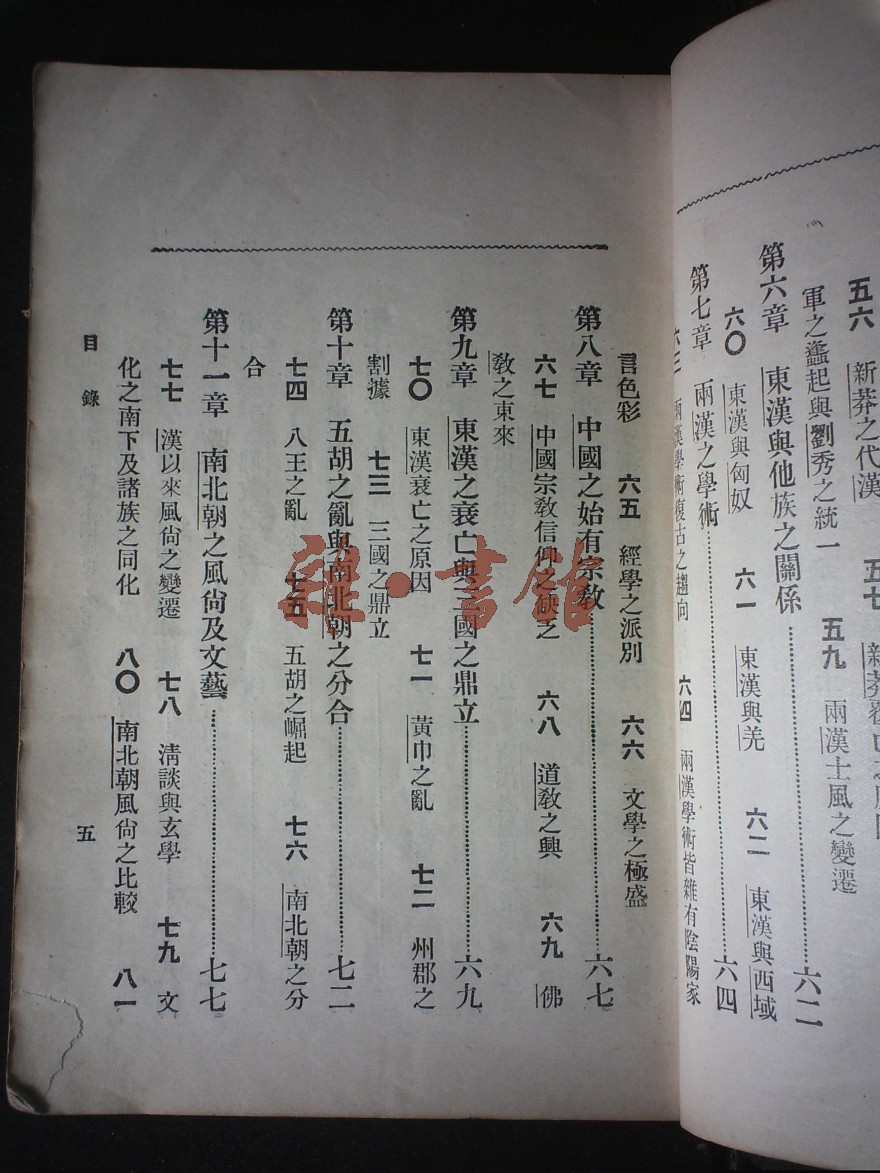 五六 新莽之代漢 五七 新莽覆亡之
軍之蠭起與劉秀之統一 五九 兩漢士風之變遷
第六章 東漢與他族之關係 六二
六〇 東漢與匈奴 六一 東漢與羌 六二 東漢與西域
第七章 兩漢之學術 六四
六三 兩漢學術復古之趨向 六四 兩漢學術皆雜有陰陽家
言色彩 六五 經學之派別 六六 文學之極盛
第八章 中國之始有宗教 六七
六七 中國宗教信仰之缺乏 六八 道教之興 六九 佛
教之東來
第九章 東漢之衰亡與三國之鼎立 六九
七〇 東漢衰亡之原因 七一 黃巾之亂 七二 州郡之
割據 七三 三國之鼎立
第十章 五胡之亂與南北朝之分合 七二
七四 八王之亂 七五 五胡之崛起 七六 南北朝之分
合
第十一章 南北朝之風尙及文藝 七七
七七 漢以來風尙之變遷 七八 淸談與玄學 七九 文
化之南下及諸族之同化 八〇 南北朝風尙之比較 八一
目錄 五
雅·書館